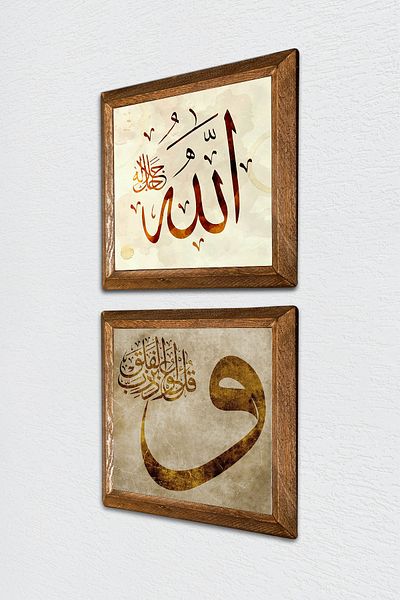 الله
جل جلاله
و
قل أعوذ برب الفلق